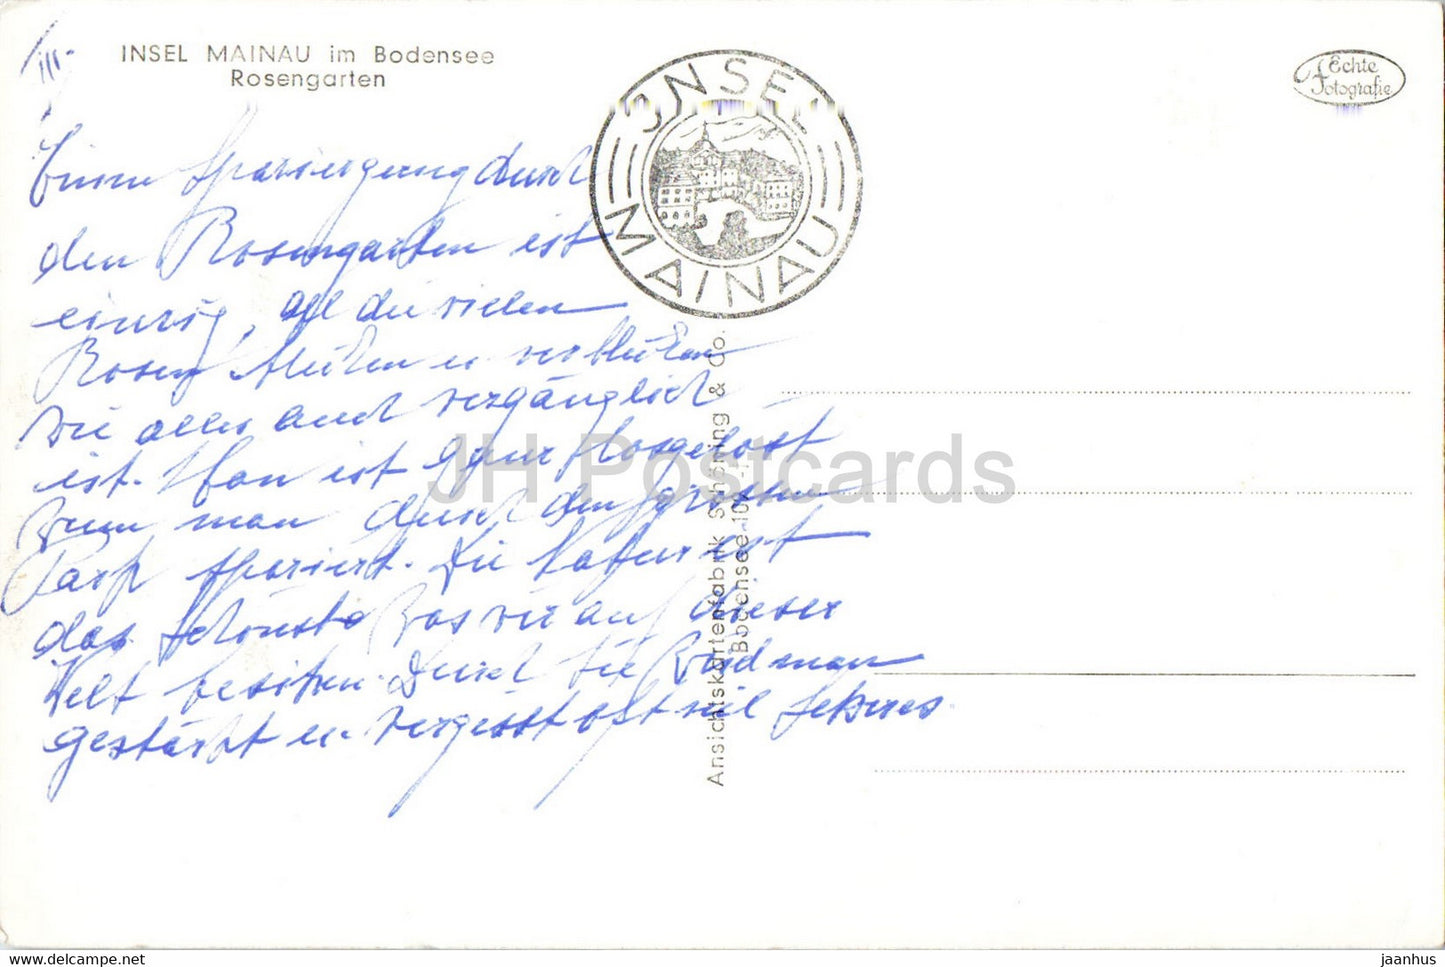 III.
INSEL MAINAU im Bodensee
Rosengarten
INSEL
MAINAU
Echte
Fotografie
Einen Spaziergang durch
den Rosengarten ist
einzig, all die vielen
Rosen blühen u verblühen
wie alles auch vergänglich
ist. Man ist ganz losgelöst
wenn man durch den grossen
Park spaziert. Die Natur ist
das Schönste was wir auf dieser
Welt besitzen. Durch sie wird man
gestärkt u. vergisst oft viel
Ansichtskartenfabrik Schöning & Co.
Bodensee
JH Postcards
jaanhus